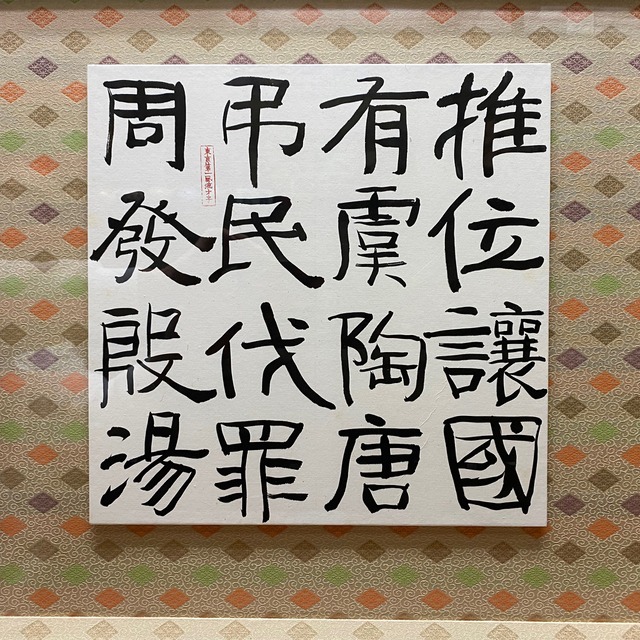 推位讓國
有虞陶唐
弔民伐罪
周發殷湯